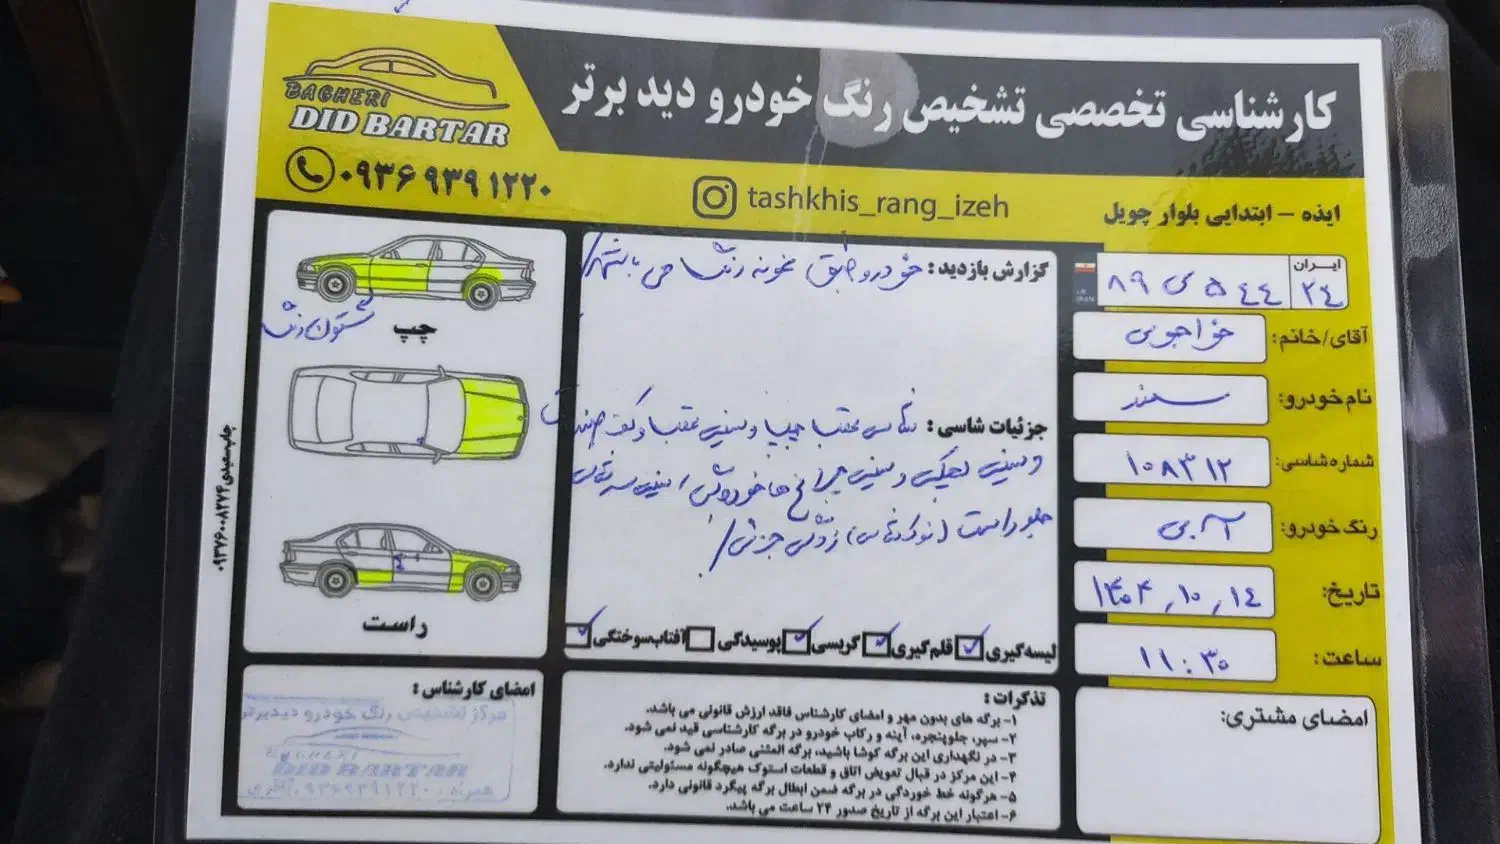 کارشناسی تخصصی تشخیص رنگ خودرو دید برتر
BAGHERI
DID BARTAR
۰۹۳۶ ۹۳۹ ۱۲۲۰
tashkhis_rang_izeh
ایذه – ابتدایی بلوار چویل
ایران
۲۴
۸۹ س ۵۴۴
آقای/خانم: خواجویی
نام خودرو: سمند
شماره شاسی: ۱۰۸۳۱۲
رنگ خودرو: آبی
تاریخ: ۱۴۰۴,۱۰,۱۴
ساعت: ۱۱:۳۰
امضای مشتری:
گزارش بازدید: خودرو طبق نمونه رنگ می باشد/
جزئیات شاسی: شاسی عقب چپ و سینی عقب و کف صندوق
و سینی و سینی چراغ ها خوردگی
جلو راست (نوک شاسی) جزئی/
لیسه‌گیری
قلم‌گیری
کریسی
پوسیدگی
آفتاب‌سوختگی
تذکرات:
۱- برگه های بدون مهر و امضای کارشناس فاقد ارزش قانونی می باشد.
۲- سپر، جلوپنجره، آینه و رکاب خودرو در برگه کارشناسی قید نمی شود.
۳- در نگهداری این برگه کوشا باشید، برگه المثنی صادر نمی شود.
۴- این مرکز در قبال تعویض اتاق و قطعات استوک هیچگونه مسئولیتی ندارد.
۵- هرگونه خط خوردگی در برگه ضمن ابطال برگه پیگرد قانونی دارد.
۶- اعتبار این برگه از تاریخ صدور ۲۴ ساعت می باشد.
چپ
ستون رنگ
راست
امضای کارشناس:
مرکز تشخیص رنگ خودرو دیدبرتر
BAGHERI
DID BARTAR
همراه: ۰۹۳۶۹۳۹۱۲۲۰ باقری
چاپ سعیدی ۰۹۳۷۶۰۰۸۲۷۴